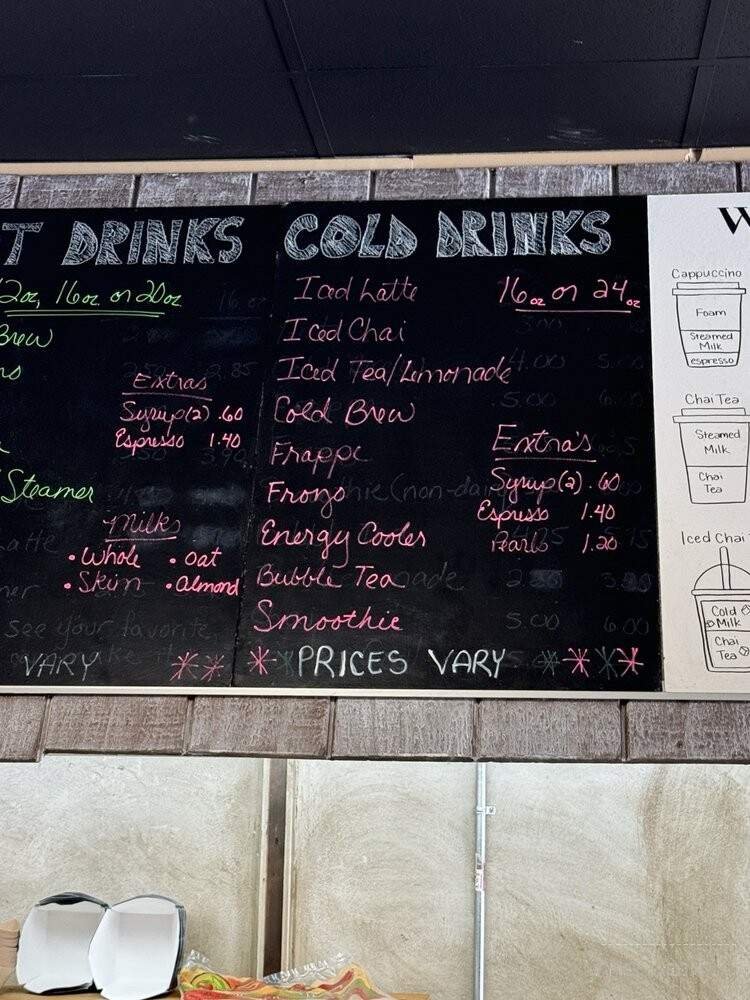 T DRINKS
12oz, 16oz or 20oz
Brew
Extras
Syrup(2) .60
Espresso 1.40
Steamer
Milks
• Whole • oat
• Skim • Almond
see your favorite
VARY
COLD DRINKS
16oz or 24oz
Iced Latte
Iced Chai
Iced Tea/Lemonade
Cold Brew
Frappe
Frozo
Energy Cooler
Bubble Tea
Smoothie
Extra's
Syrup(2) .60
Espresso 1.40
Pearls 1.20
PRICES VARY
W
Cappuccino
Foam
Steamed
Milk
espresso
Chai Tea
Steamed
Milk
Chai
Tea
Iced Chai
Cold
Milk
Chai
Tea